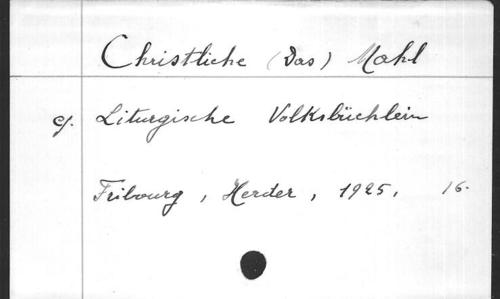 Christliche (Das) Mahl
cf. Liturgische Volksbüchlein
Fribourg, Herder, 1925, 16.